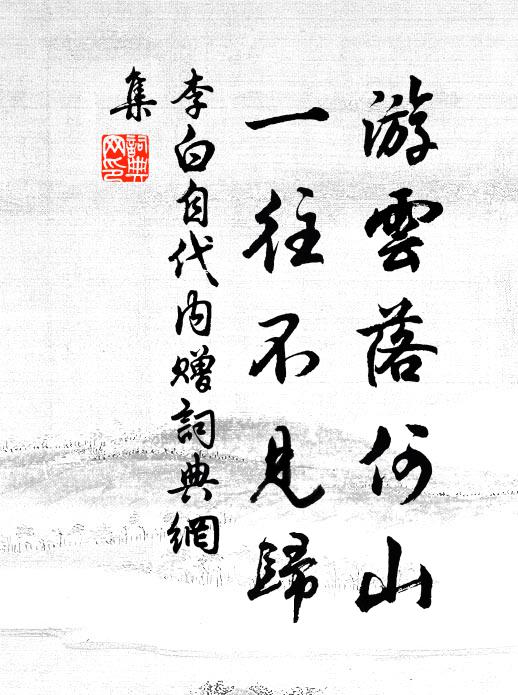 游雲落何山
一往不見歸
李白自代內贈詞典網
集
詞典
网印